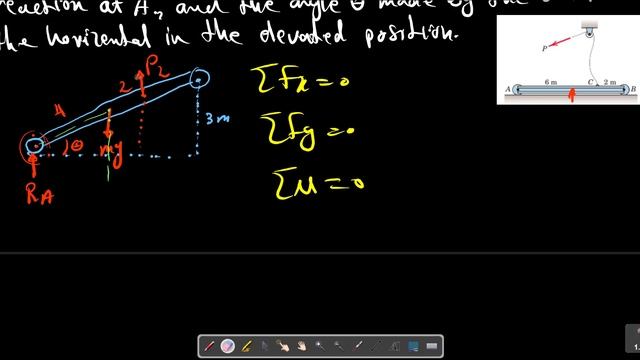 reaction at A, and the angle θ made by the
the horizontal in the elevated position.
P
6 m
C
2 m
A
B
4
2
P2
3 m
θ
mg
RA
Σfx=0
Σfy=0
ΣM=0